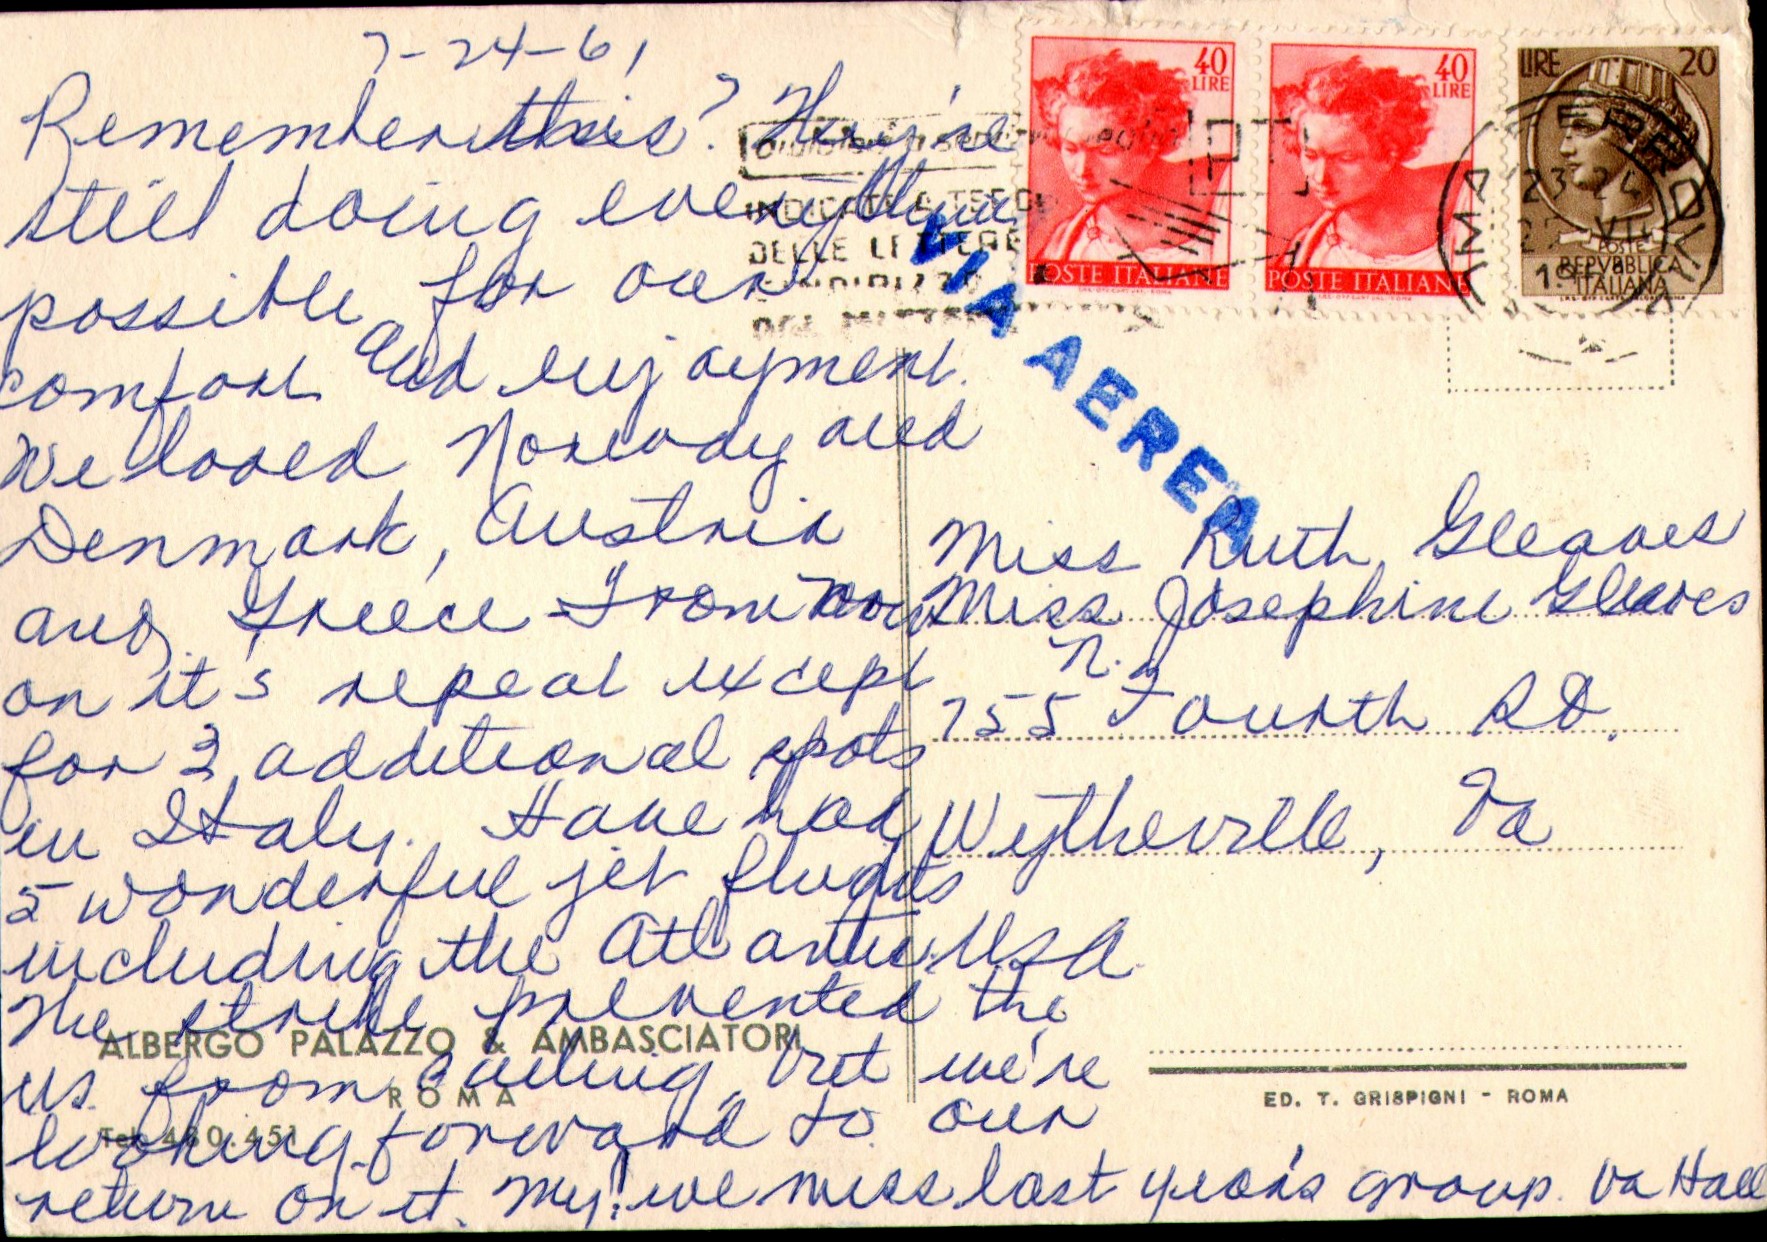 7-24-61
Remember this? They're
still doing everything
possible for our
comfort and enjoyment.
We loved Norway and
Denmark, Austria
and Greece From now
on it's repeat except
for 3 additional spots
in Italy. Have had
5 wonderful jet flights
including the Atlantic. USA
The strike prevented the
us from sailing, but we're
looking forward to our
return on it. My! we miss last year's group. Va Hall
ALBERGO PALAZZO & AMBASCIATORI
ROMA
Tel. 480.451
40
LIRE
POSTE ITALIANE
40
LIRE
POSTE ITALIANE
LIRE 20
POSTE
REPVBBLICA
ITALIANA
23-24
VII
ROMA
INDICATE
DELLE LETTERE
VIA AEREA
Miss Ruth Gleaves
Miss Josephine Gleaves
755 N. Fourth St.
Wytheville, Va
ED. T. GRISPIGNI - ROMA